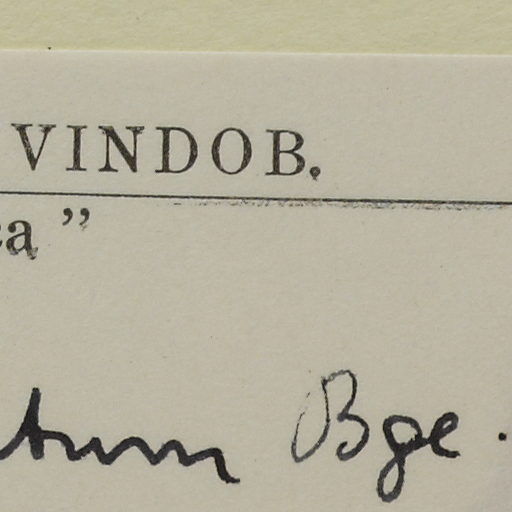 VINDOB.
ca ”
tum Bge.